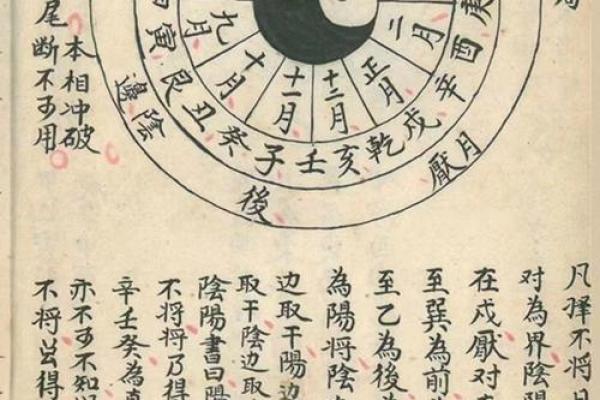 本相冲破
尾断不可用
二月
正月
十二月
十一月
十月
九月
酉辛戌乾亥壬子癸丑艮寅
月厭
後
陰邊
凡擇不将
对為界陰陽
在戌厭对
至巽為前
至乙為後
為陽将陰
边取干陽边
取干陰边取
陰陽書曰陽
不将将乃得
辛壬癸為
亦不可不知
不将得